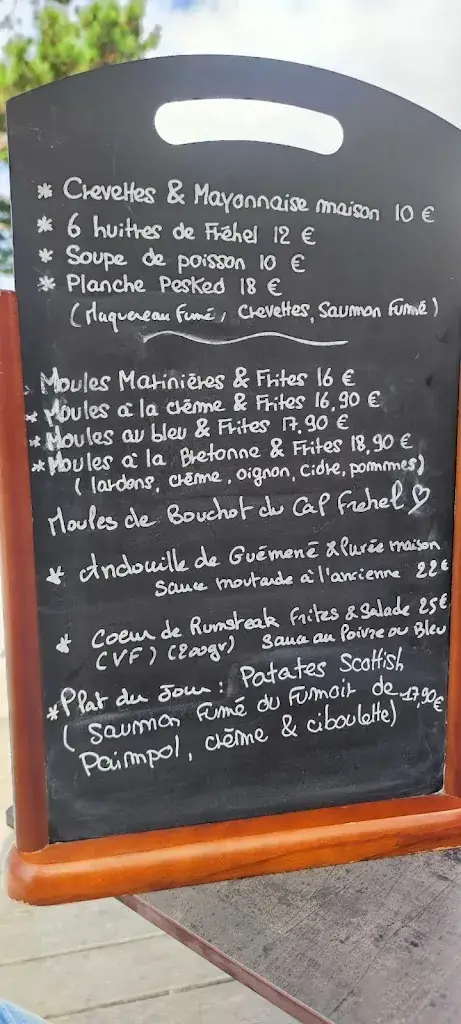 * Crevettes & Mayonnaise maison 10 €
* 6 huitres de Fréhel 12 €
* Soupe de poisson 10 €
* Planche Pesked 18 €
( Maquereau Fumé, Crevettes, Saumon Fumé )
Moules Marinières & Frites 16 €
* Moules à la crème & Frites 16,90 €
* Moules au bleu & Frites 17,90 €
* Moules à la Bretonne & Frites 18,90 €
( lardons, crème, oignon, cidre, pommes)
Moules de Bouchot du Cap Frehel ♡
* Andouille de Guémené & Purée maison
Sauce moutarde à l'ancienne 22€
* Coeur de Rumsteak Frites & Salade 25€
(VF) (200gr) Sauce au Poivre ou Bleu
* Plat du Jour : Patates Scottish
( Saumon Fumé du Fumoir de 17,90€
Paimpol, crème & ciboulette)